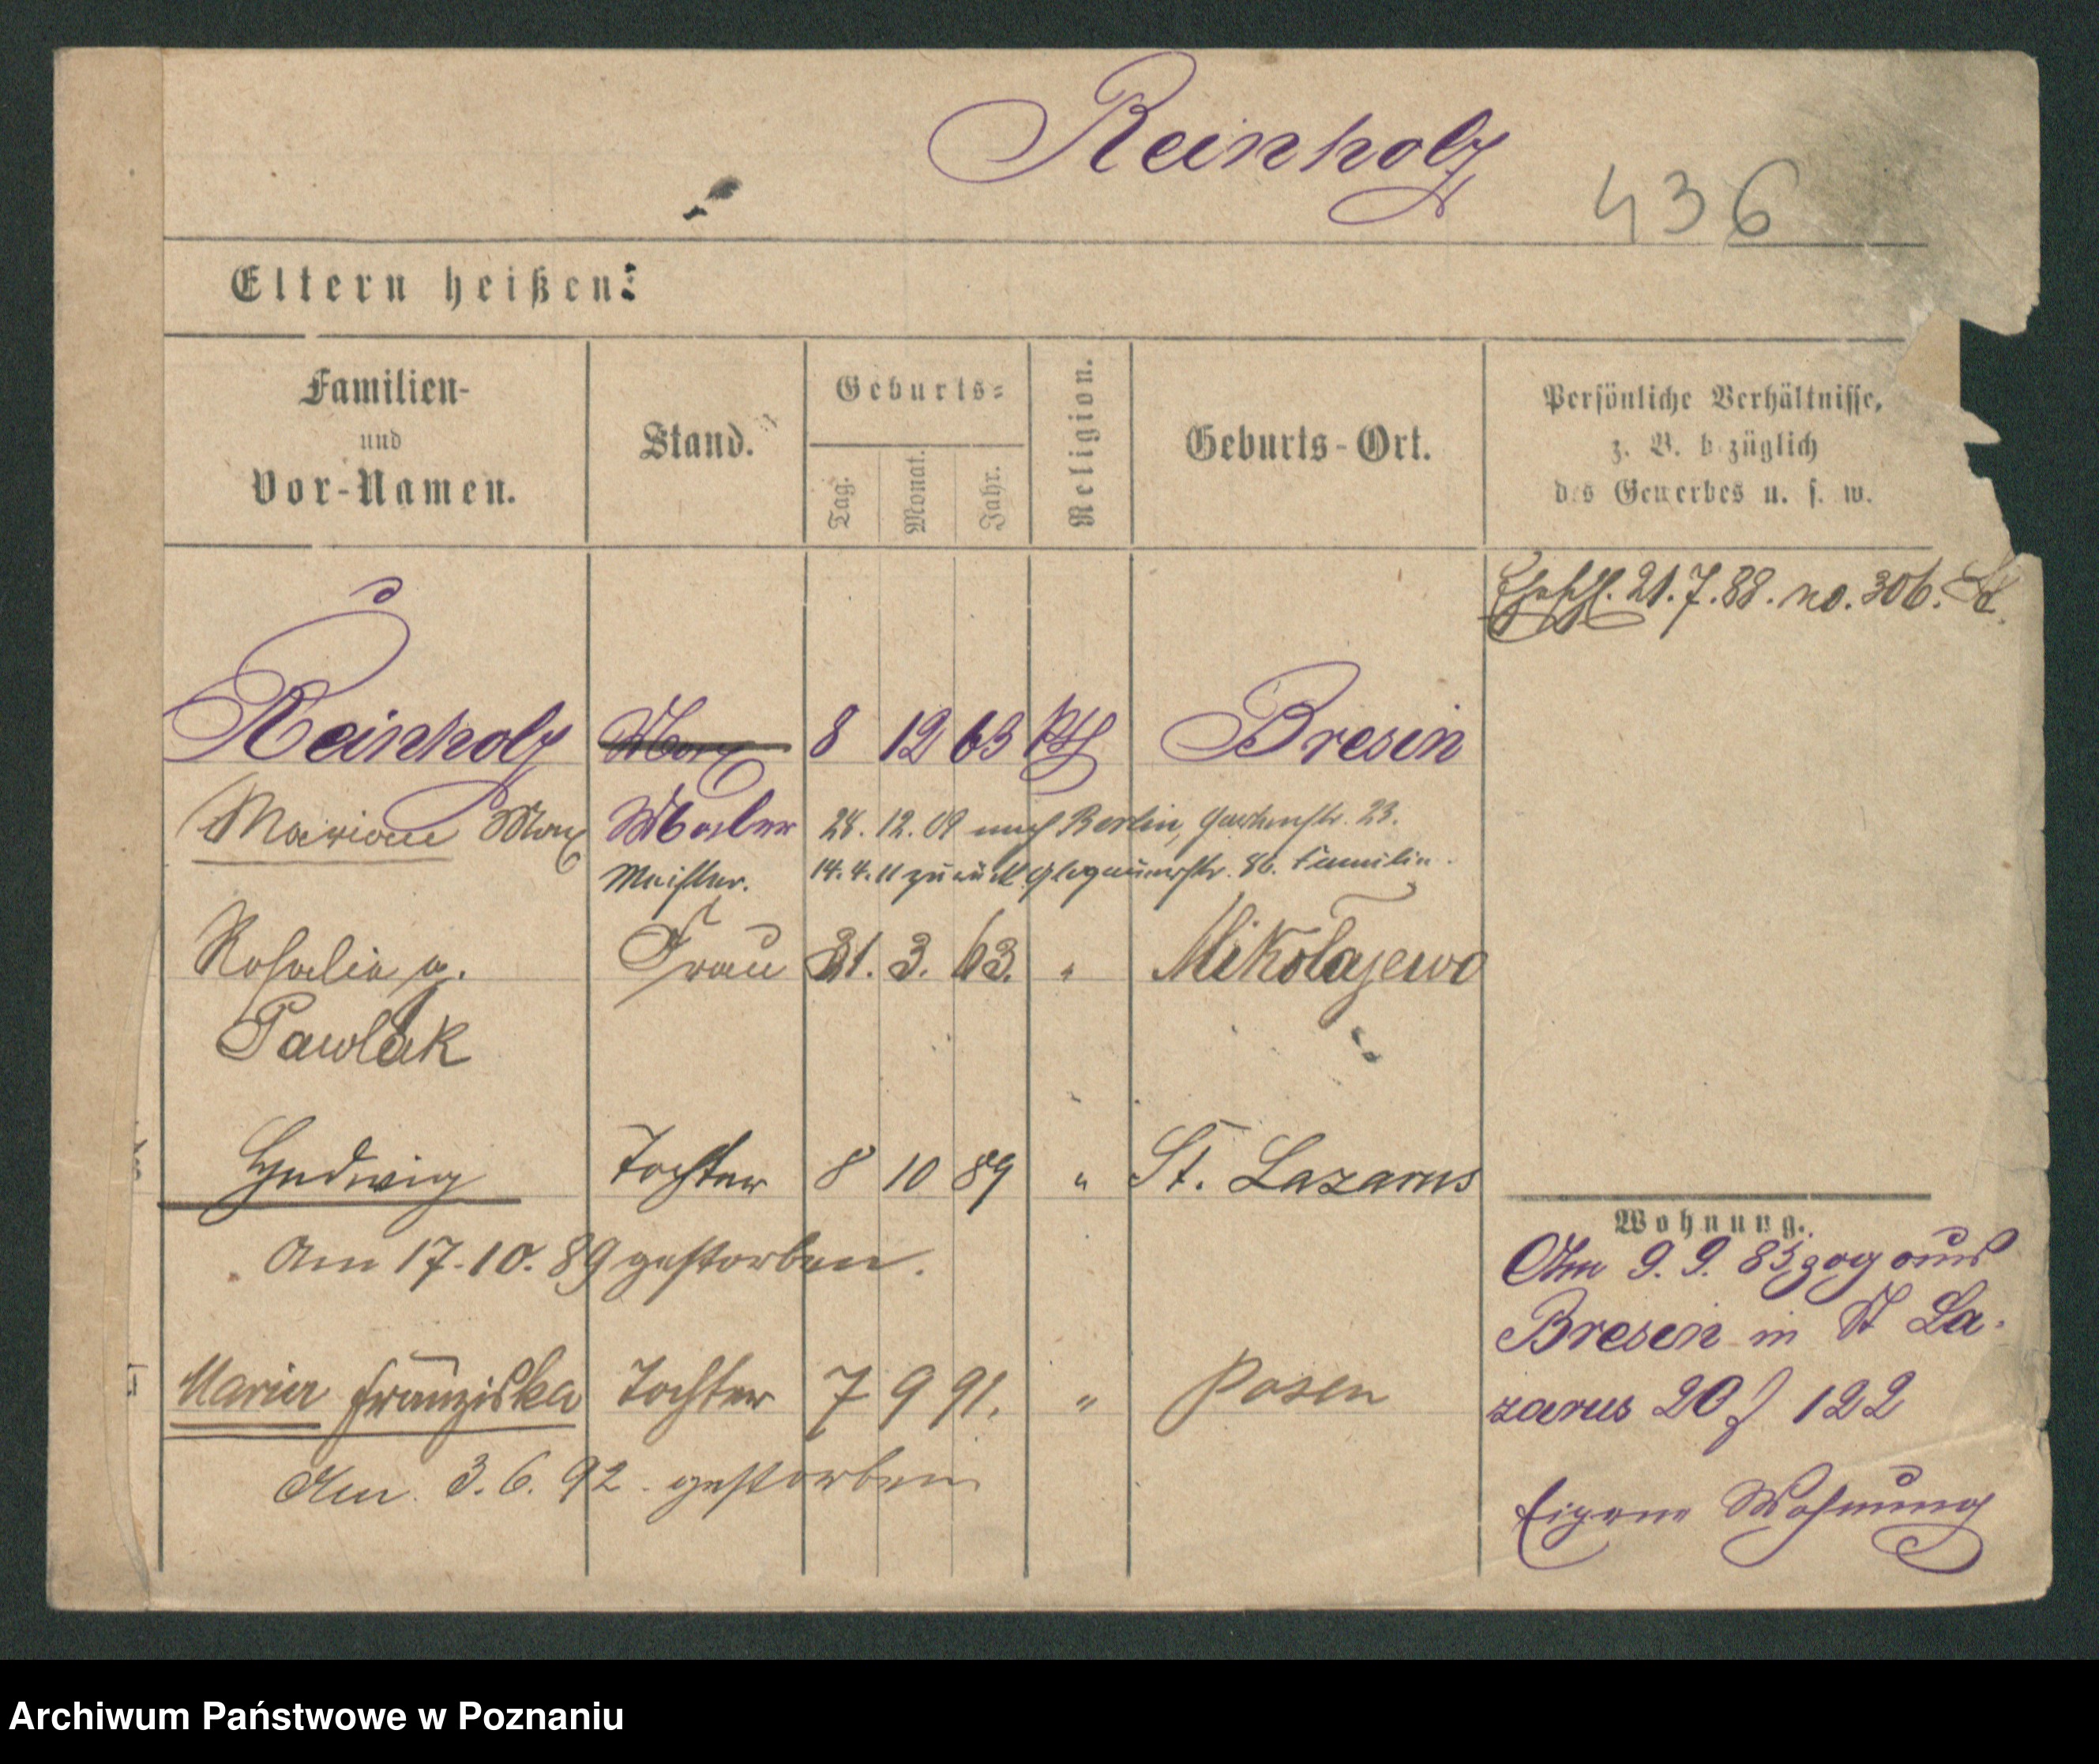 Reinholz
436
Eltern heißen:
Familien-
und
Vor-Namen.
Stand.
Geburts-
Tag.
Monat.
Jahr.
Religion.
Geburts-Ort.
Persönliche Verhältnisse,
z. B. b züglich
des Gewerbes u. s. w.
21.7.88. no. 306. St.
Reinholz Max 8 12 63 Kth Bresin
Marian Max Maler 28. 12. 09 nach Berlin, Gartenstr. 23.
Meister. 14.4.11 zurück Glogauerstr. 86. Familie.
Rosalia g. Frau 31. 3. 63. " Mikolajewo
Pawlak
Hedwig Tochter 8 10 89 " St. Lazarus
Am 17.10.89 gestorben.
Maria Franziska Tochter 7 9 91. " Posen
Am 3.6.92. gestorben
Wohnung.
Am 9. 9. 85 zog aus
Bresen in St La-
zarus 20 f 122
Eigene Wohnung
Archiwum Państwowe w Poznaniu